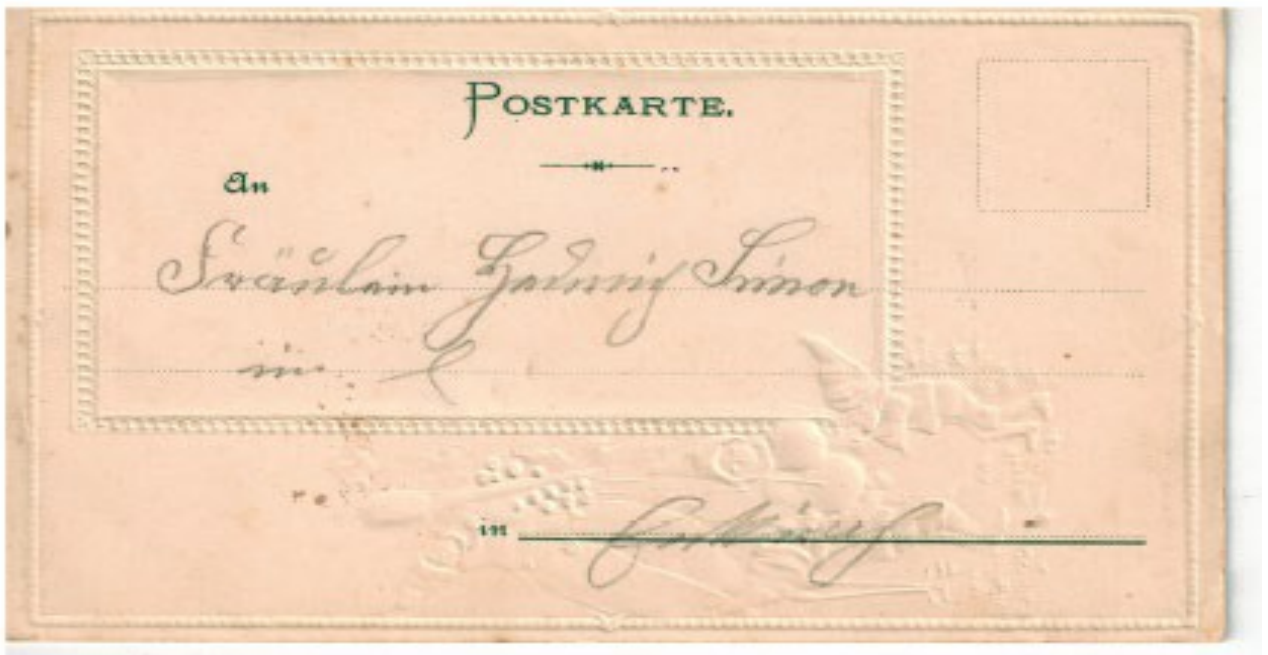 POSTKARTE.
An
Fräulein Hedwig Simon
in
in